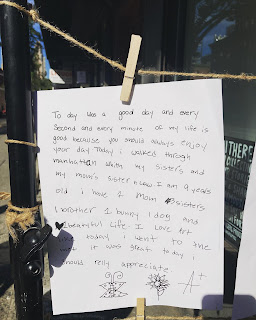 To day Was a good day and every
Second and every minute of my life is
good because you should always enjoy
your day Today i walked through
manhattan with my sisters and
my mom's sister I am 9 years
old i have 1 Mom sisters
1 brother 1 bunny 1 dog and
beautyful life. I Love Art
today i went to the
it was great today i
should relly appreciate
A+
THERE